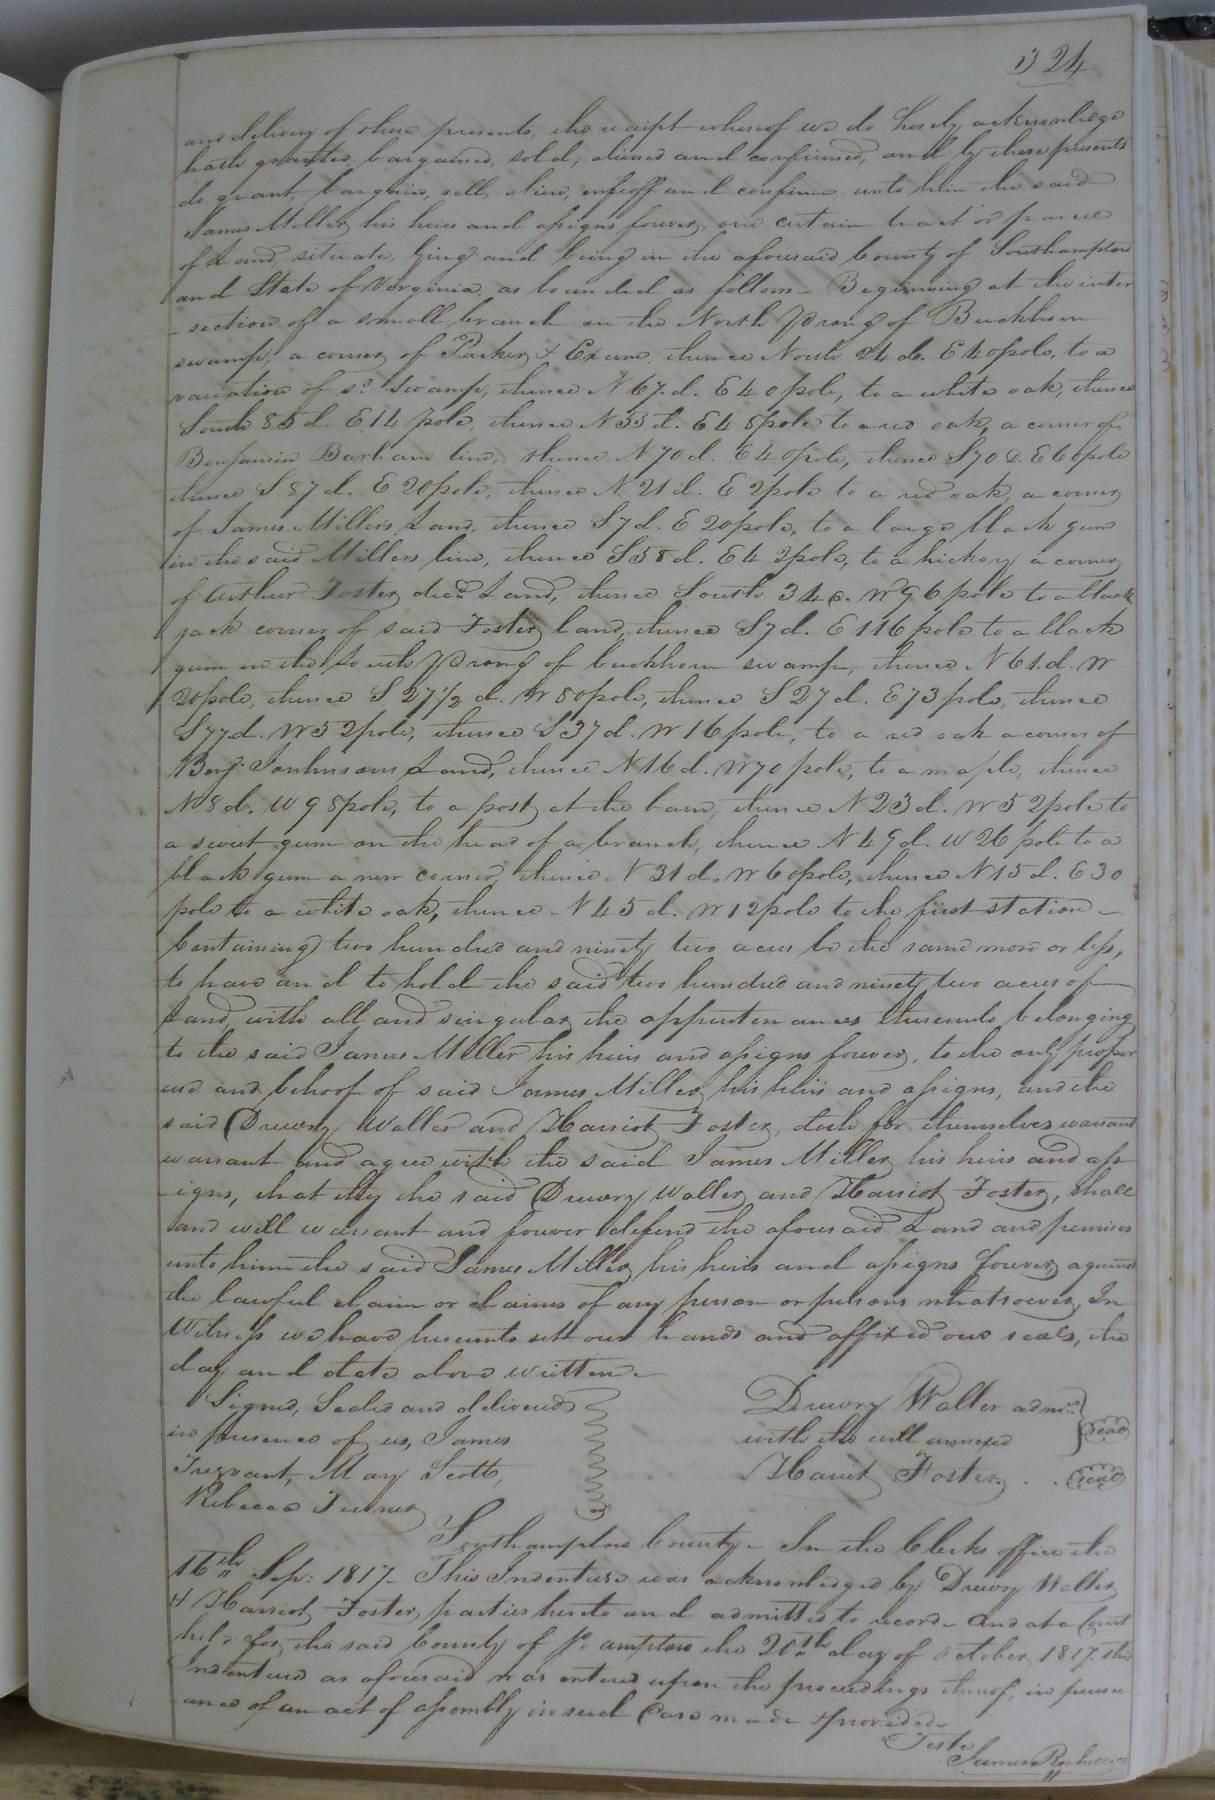 324
and delivery of these presents, the receipt whereof we do hereby acknowledge
hath granted, bargained, sold, aliened and confirmed, and by these presents
do grant, bargain, sell, alien, enfeoff and confirm unto him the said
James Miller his heirs and assigns forever, one certain tract or parcel
of Land, situate lying and being in the aforesaid County of Southampton
and State of Virginia, as bounded as follows - Beginning at the inter
-section of a small branch on the North prong of Buckhorn
swamp, a corner of Parker & Exum, thence North 24 d. E 40 pole, to a
variation of sd. Swamp, thence N 67 d. E 40 pole, to a white oak, thence
South 85 d E 14 pole, thence N 33 d. E 48 pole to a red oak, a corner of
Benjamin Barham line, thence N 70 d. E 40 pole, thence S 70 d. E 60 pole
thence S 87 d. E 20 pole, thence N 21 d. E 2 pole to a red oak, a corner
of James Millers Land, thence S 7 d. E 20 pole, to a large black gum
in the said Millers line, thence S 58 d. E 42 pole, to a hickory a corner
of Arthur Foster decd. Land, thence South 34 d. W 96 pole to a black
jack corner of said Foster land, thence S 7 d. E 116 pole to a black
gum in the South prong of buckhorn swamp, thence N 61. d. W
20 pole, thence S 27 1/2 d. W 80 pole, thence S 27 d. E 73 pole, thence
S 77 d. W 52 pole, thence S 37 d. W 16 pole, to a red oak a corner of
Benj. Johnsons Land, thence N 16 d. W 70 pole, to a maple, thence
N 8 d. W 98 pole, to a post at the barn, thence N 23 d. W 52 pole to
a sweet gum on the head of a branch, thence N 49 d. W 26 pole to a
black gum a new corner, thence N 31 d. W 60 pole, thence N 15 d. E 30
pole to a white oak, thence N 45 d. W 12 pole to the first station -
Containing two hundred and ninety two acres be the same more or less,
to have and to hold the said two hundred and ninety two acres of
Land with all and singular the appurtenances thereunto belonging
to the said James Miller his heirs and assigns forever, to the only proper
use and behoof of said James Miller his heirs and assigns, and the
said Drewry Waller and Harriot Foster, doth for themselves warrant
warrant and agree with the said James Miller his heirs and ass
-igns, that they the said Drewry Waller and Harriot Foster, shall
and will warrant and forever defend the aforesaid Land and premises
unto him the said James Miller his heirs and assigns forever against
the lawful claim or claims of any person or persons whatsoever, In
Witness we have hereunto sett our hands and affixed our seals, the
day and date above written -
Signed, Sealed and delivered
in presence of us, James
Trezvant, Mary Scott,
Rebecca Turner
Drewry Waller admr.
with the will annexed seal
Harriet Foster . . seal
Southampton County - In the Clerks office the
16th Sep: 1817 - This Indenture was acknowledged by Drewry Waller
& Harriot Foster, parties hereto and admitted to record - And at a Court
held for the said County of So ampton the 20th day of October 1817 this
Indenture as aforesaid was entered upon the proceedings thereof, in pursu
ance of an act of assembly in such Case made & provided.
Teste
James Rochelle